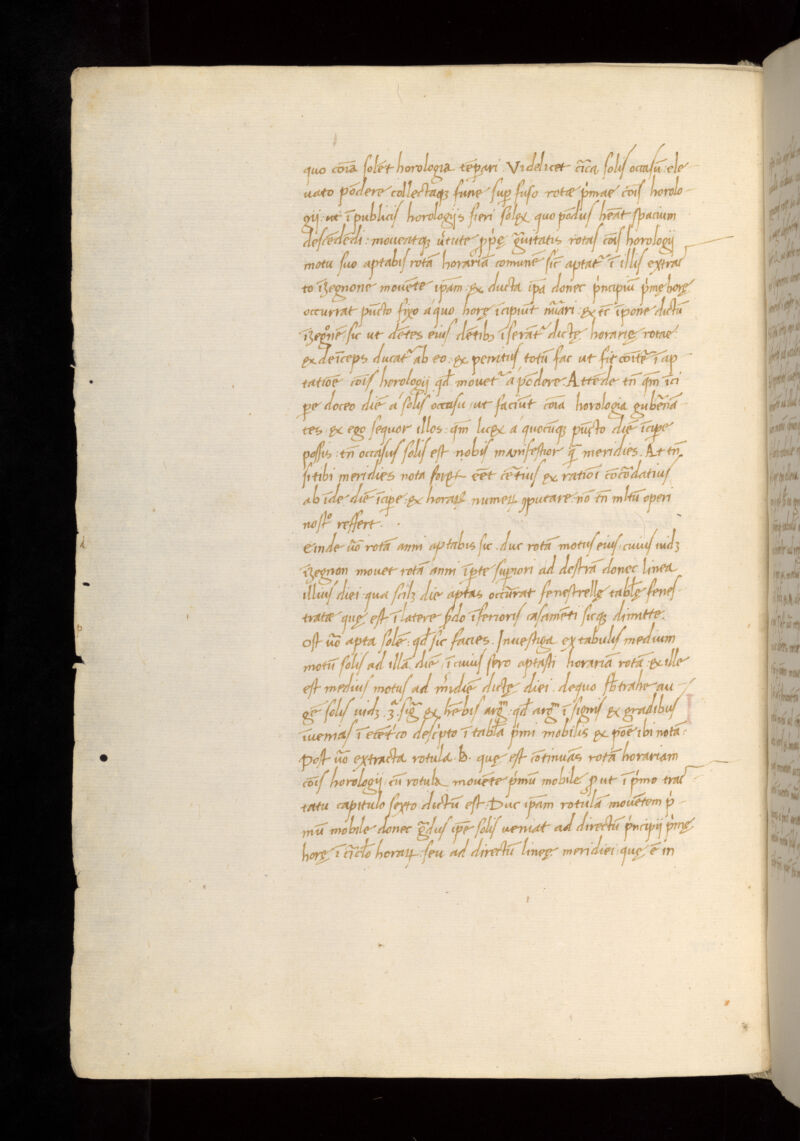 quo cōīa solēt horologia tēpari. Videlicet cīrca solis occasū ele
uato pōdere collectaqꝫ fūne sup fuso rotæ pͥmæ cōīs horolo
gij: ut ī publicis horologijs fieri solet quo pōdus hēat spacium
descēdēdi: moueatqꝫ uͥtute ꝓpͥę gͣuitatis rotas cōīs horologij
motu suo aptabis rotā horariā comunē sic aptatͬ ī illis extrac
to ꝫegnone mouēte ip̄am: et ducta ip̄a donec pͥncipiū pͥmę horę
occurrat pūcto fixo a quo horę īcipiūt nūari et tc̄ īpone dictū
ꝫegonē sic ut dētes eius dētibꝫ īserātͬ dictę horarię rotae
et deīceps ducatͬ ab eo. et penitus totū fac ut fit cōīter ī ap
tatiōe cōīs horologij qd̄ mouetͬ a pōdere. Attēde tn̄ qm̄ īci
pe doceo diē a solis occasu: ut faciūt cōīa horologia gubernā
tes: et ego sequor illos: qm̄ licet a quocūqꝫ pūcto diē īcipe
possis: tn̄ occasus solis est nobis manifestior qͣ meridies. At tn̄
si tibi meridies nota foret eēt cͤtius et ratiōi cōcōdatius
ab īde diē īcipe: et horaꝝ numeꝝ ꝯputare nō tn̄ mltū operi
nostͦ reffert.
Einde uͦo rotā anni aptabis sic. duc rotā motus eius, cuius uidꝫ
ꝫegnon mouet rotā anni īpte supiori ad destrā donec linea
illius diei: qua scilꝫ die aptas occurrat fenestrellę tablę fenes
tratæ quę est ī latere pͬdo īferioris casamēti sicqꝫ dimitte.
ost uͦo apta solē: qd̄ sic facies. Inuestiga ex tabulis medium
motū solis ad illā diē: ī cuius sero aptasti horariā rotā et ille
est medius motus ad mͬidiē dictę diei. de quo sb̄trahe au
gē solis uidꝫ 3ͣ sigͣ et hēbis argm̄. qd̄ argm̄ ī signis et gradibus
īuenias ī ecētͬco descͥpto ī tabla pͥmi mobilis et pōe ibi notā.
Post uͦo extracta rotula .b. quę est cōtinuās rotā horariam
cōīs horologij cū rotula mouēte pͥmū mobile ꝓut ī pͥmo trac
tatu capitulo sexto dictū est. Duc ip̄am rotulā mouētem pͥ
mū mobile donec gͣdus ip̄e solis ueniat ad directū pͥncipij pͥmę
horę ī cͥrclo horaꝝ. seu ad directū lineę meridiei: quę ē in